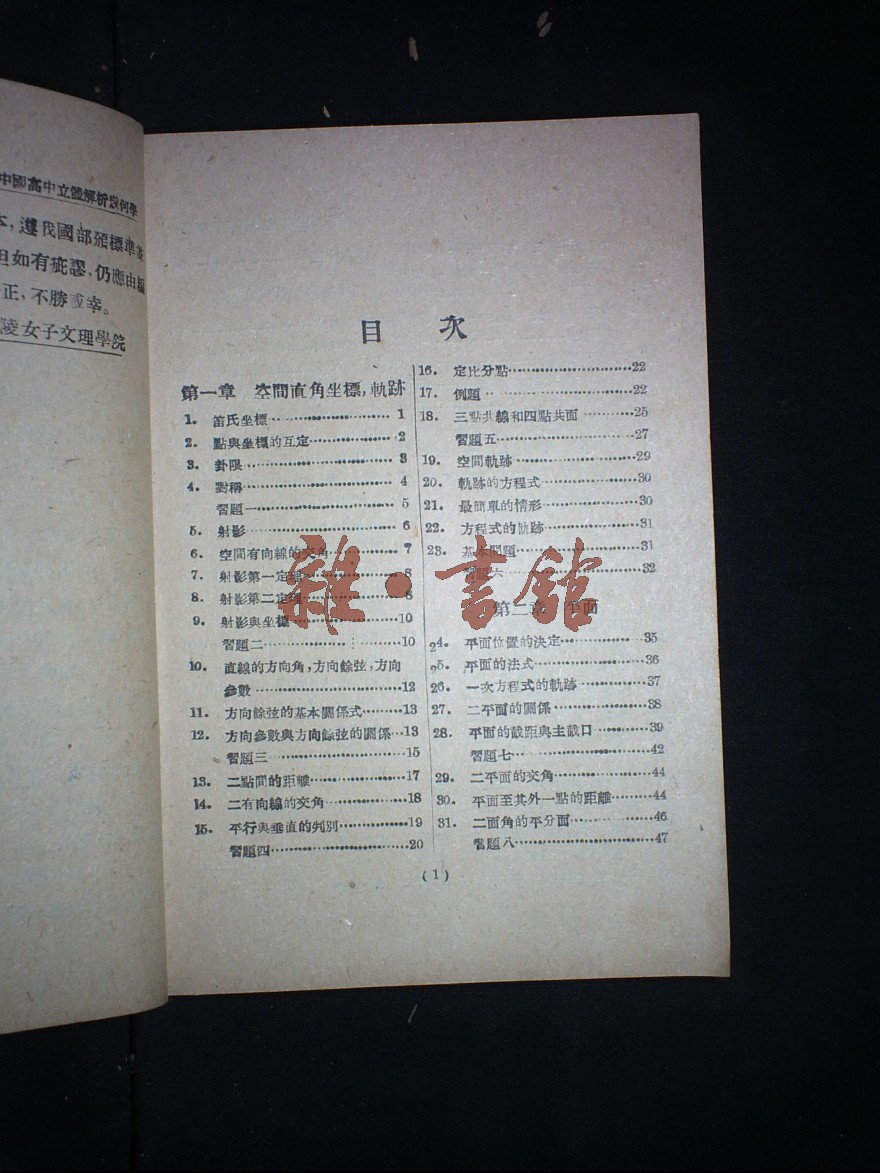 中國高中立體解析幾何學
本，遵我國部頒標準並
但如有疵謬，仍應由編
正，不勝
幸。
陵女子文理學院
目 次
第一章 空間直角坐標，軌跡
1. 笛氏坐標 1
2. 點與坐標的互定 2
3. 卦限 3
4. 對稱 4
習題一 5
5. 射影 6
6. 空間有向線的交角 7
7. 射影第一定理 8
8. 射影第二定理 8
9. 射影與坐標 10
習題二 10
10. 直線的方向角，方向餘弦，方向
參數 12
11. 方向餘弦的基本關係式 13
12. 方向參數與方向餘弦的關係 13
習題三 15
13. 二點間的距離 17
14. 二有向線的交角 18
15. 平行與垂直的判別 19
習題四 20
16. 定比分點 22
17. 例題 22
18. 三點共線和四點共面 25
習題五 27
19. 空間軌跡 29
20. 軌跡的方程式 30
21. 最簡單的情形 30
22. 方程式的軌跡 31
23. 基本問題 31
習題六 32
第二章 平面
24. 平面位置的決定 35
25. 平面的法式 36
26. 一次方程式的軌跡 37
27. 二平面的關係 38
28. 平面的截距與主截口 39
習題七 42
29. 二平面的交角 44
30. 平面至其外一點的距離 44
31. 二面角的平分面 46
習題八 47
(1)
雜·書館